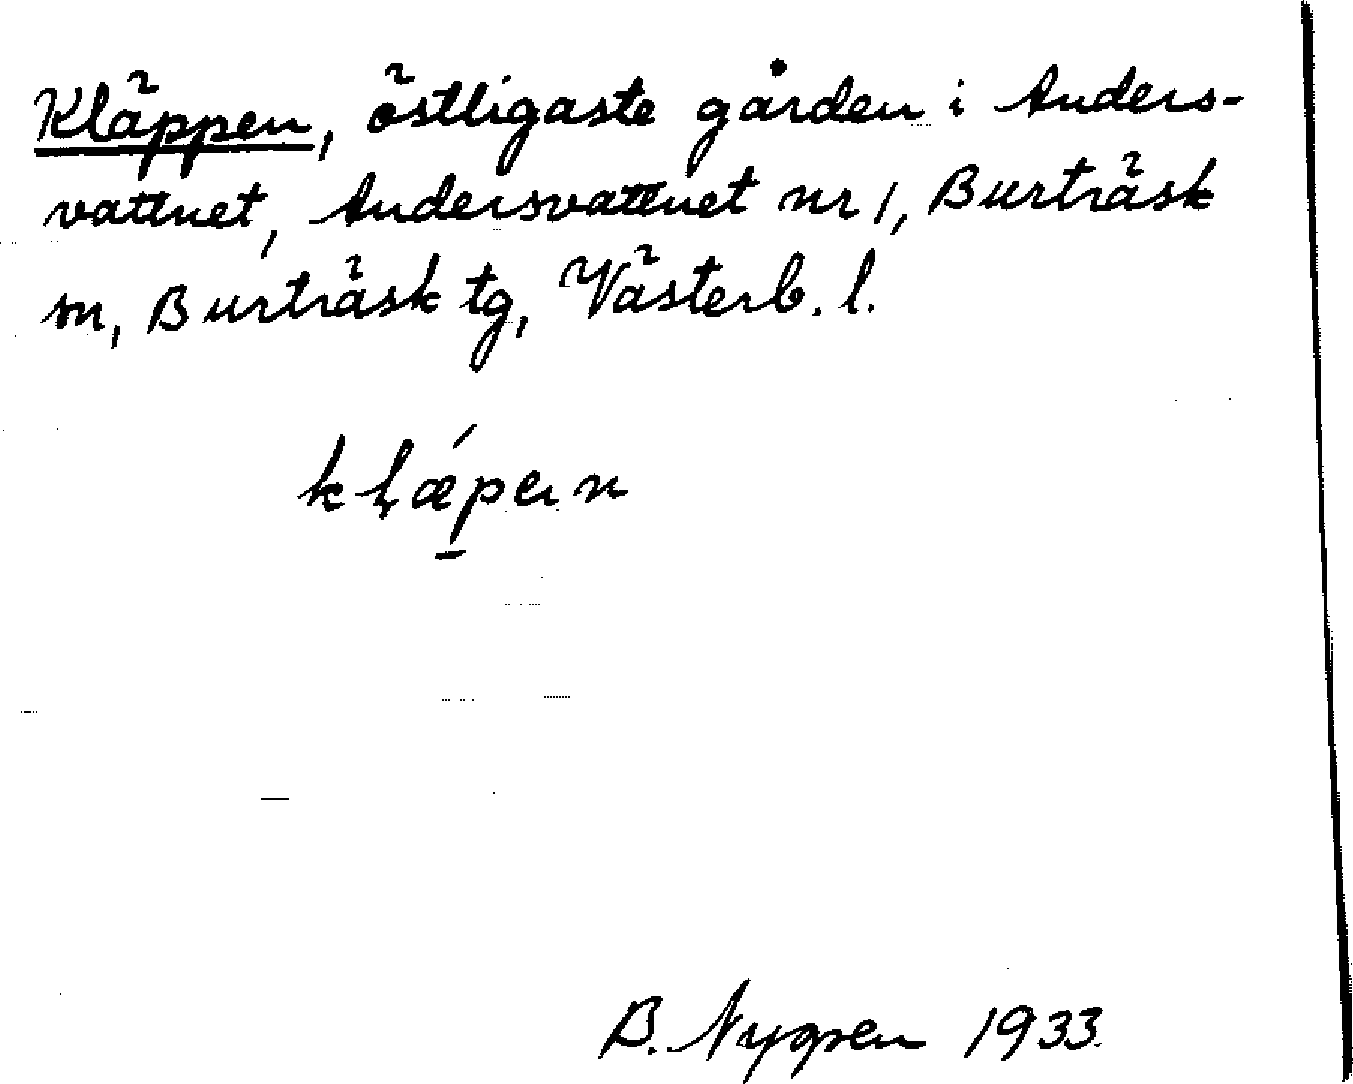 Kläppen, östligaste gården i Anders-
vattnet, Andersvattnet nr 1, Burträsk
sn, Burträsk tg, Västerb. l.
klǽpen
B. Nygren 1933